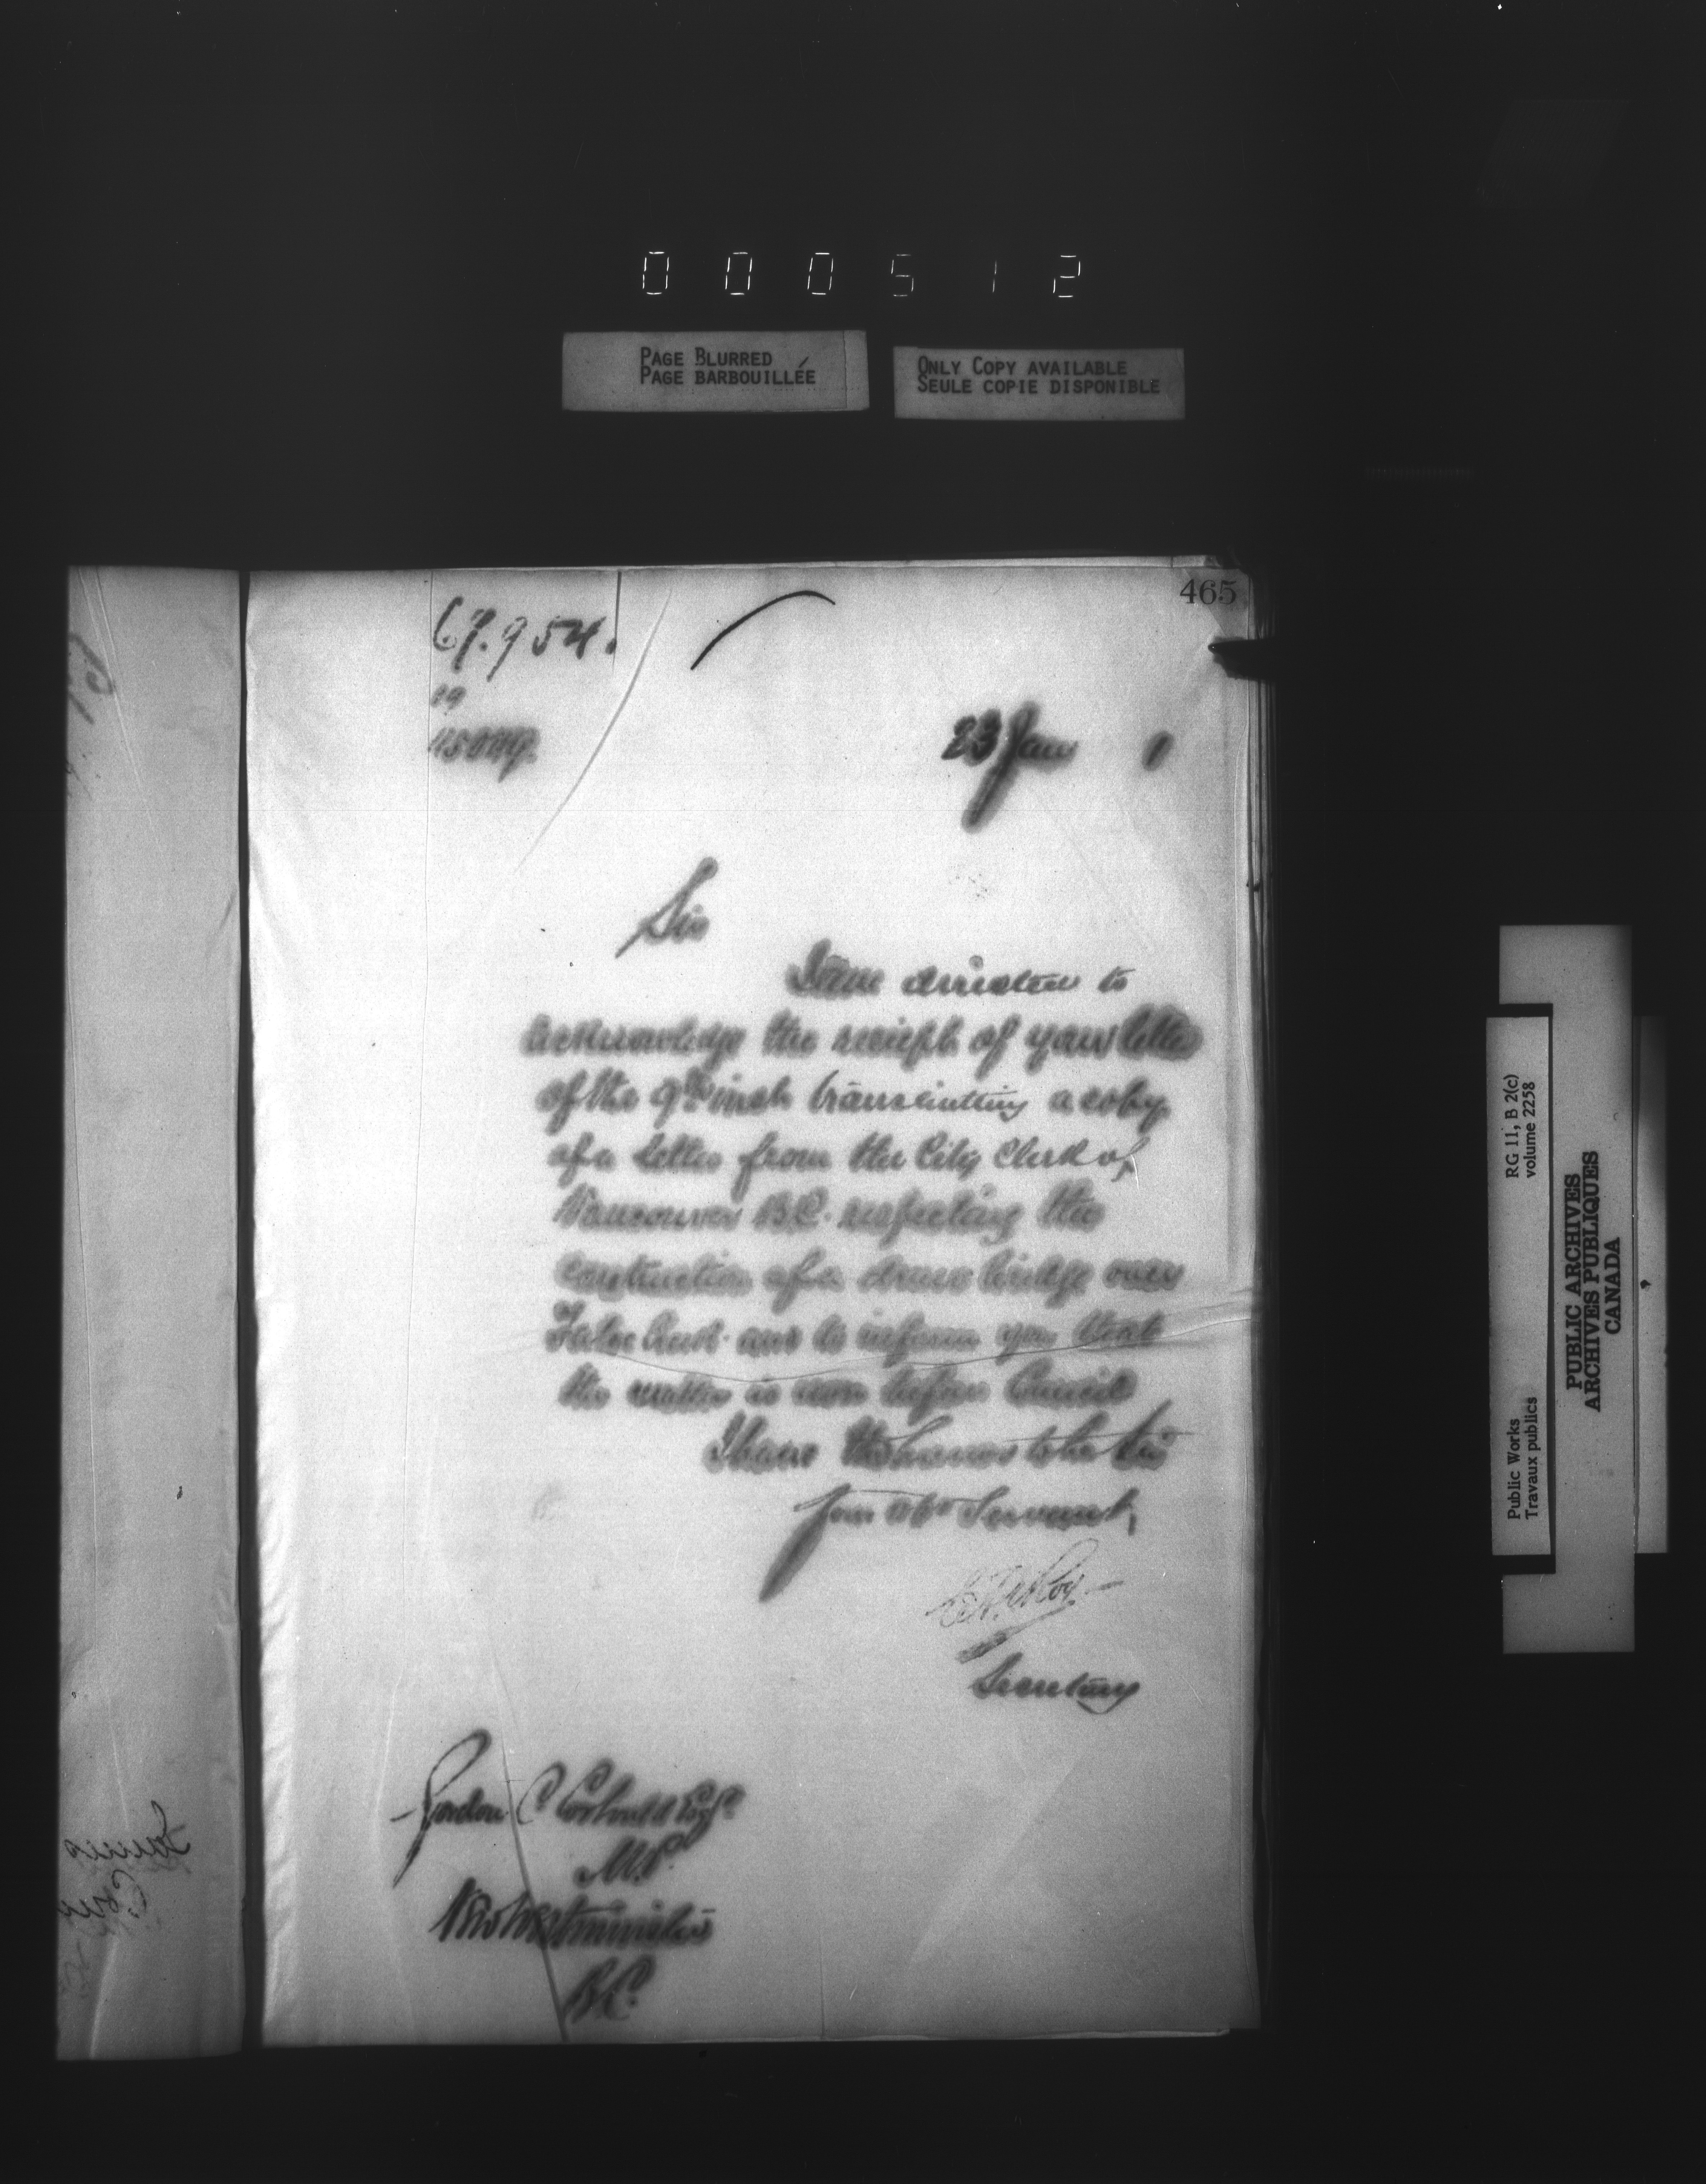 000512
PAGE BLURRED
PAGE BARBOUILLÉE
ONLY COPY AVAILABLE
SEULE COPIE DISPONIBLE
465
67.954.
23 Jan 1
Sir
I am directed to
acknowledge the receipt of your letter
of the 9th inst transmitting a copy
of a letter from the City Clerk of
Vancouver B.C. respecting the
construction of a draw bridge over
False Creek and to inform you that
the matter is now before Council
I have the honor to be Sir
Your obt Servant,
Secretary
Gordon C Corbould Esqr
M.P.
New Westminster
B.C.
RG 11, B 2(c)
volume 2258
Public Works
Travaux publics
PUBLIC ARCHIVES
ARCHIVES PUBLIQUES
CANADA